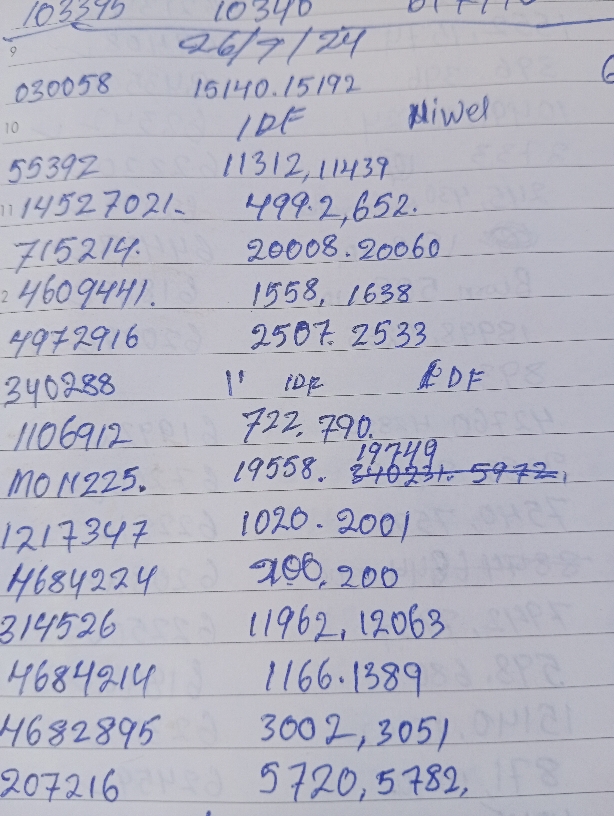 103395 10340
26/7/24
9
030058 15140.15192
10 IDF Niwel
55392 11312, 11439
11 14527021- 499.2,652.
715214. 20008.20060
2 4609441. 1558, 1638
4972916 2507. 2533
340288 11 IDF IDF
1106912 722. 790.
19749
MON225. 19558. 340231. 5972,
1217347 1020. 2001
4684224 200, 200
314526 11962, 12063
4684214 1166.1389
4682895 3002, 3051
207216 5720, 5782,